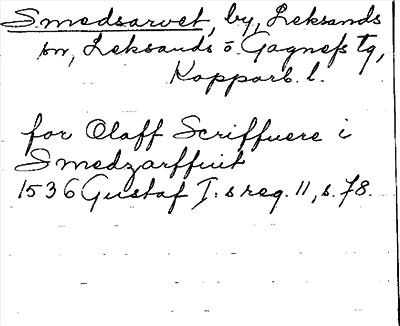 Smedsarvet, by, Leksands
sn, Leksands o. Gagnefs tg,
Kopparb. l.
for Olaff Scriffuere i
Smedzarffuit
1536 Gustaf I:s reg. 11, s. 78.